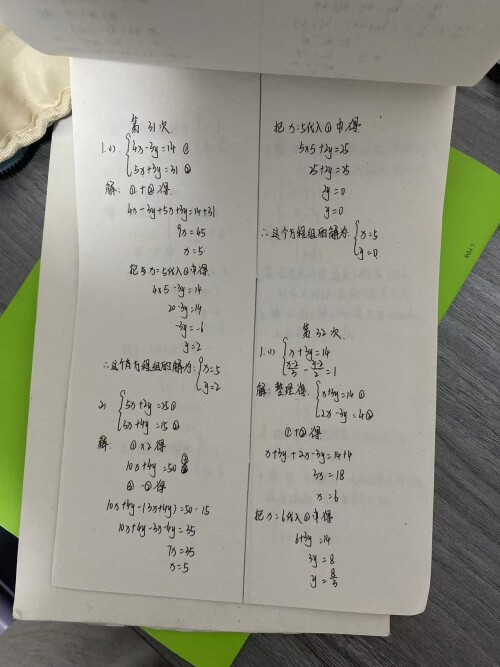 第31次
1.(1) {4x-3y=14 ①
5x+3y=31 ②
解: ①+②得
4x-3y+5x+3y=14+31
9x=45
x=5
把x=5代入①中得
4×5-3y=14
20-3y=14
-3y=-6
y=2
∴这个方程组的解为:{x=5
y=2
2) {5x+2y=25①
3x+4y=15②
解: ①×2得
10x+4y=50③
③-②得
10x+4y-(3x+4y)=50-15
10x+4y-3x-4y=35
7x=35
x=5
把x=5代入①中得
5×5+2y=25
25+2y=25
2y=0
y=0
∴这个方程组的解为:{x=5
y=0
第32次
1.(1) {x+3y=14
解: 整理得:{x+3y=14①
2x-3y=4②
①+②得
x+3y+2x-3y=14+4
3x=18
x=6
把x=6代入①中得
6+3y=14
3y=8
y=8/3